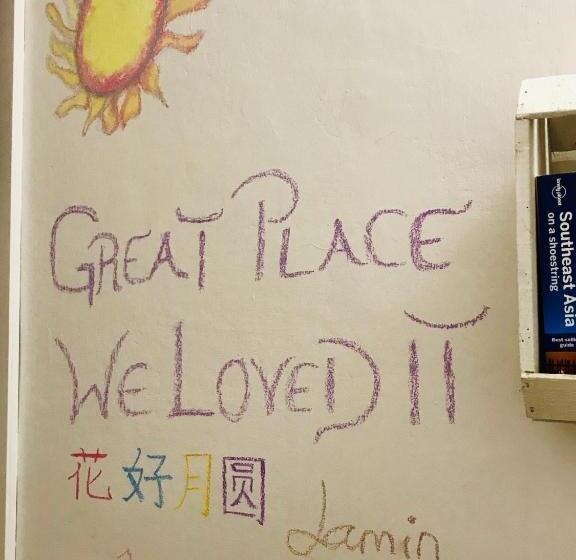 GREAT PLACE
WE LOVED IT
花好月圆
Jamin
lonely planet
Southeast Asia
on a shoestring